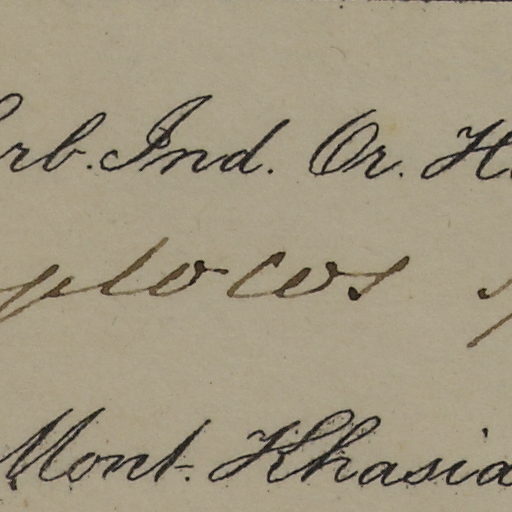 rb. Ind. Or. H.
plocos
Mont. Khasia